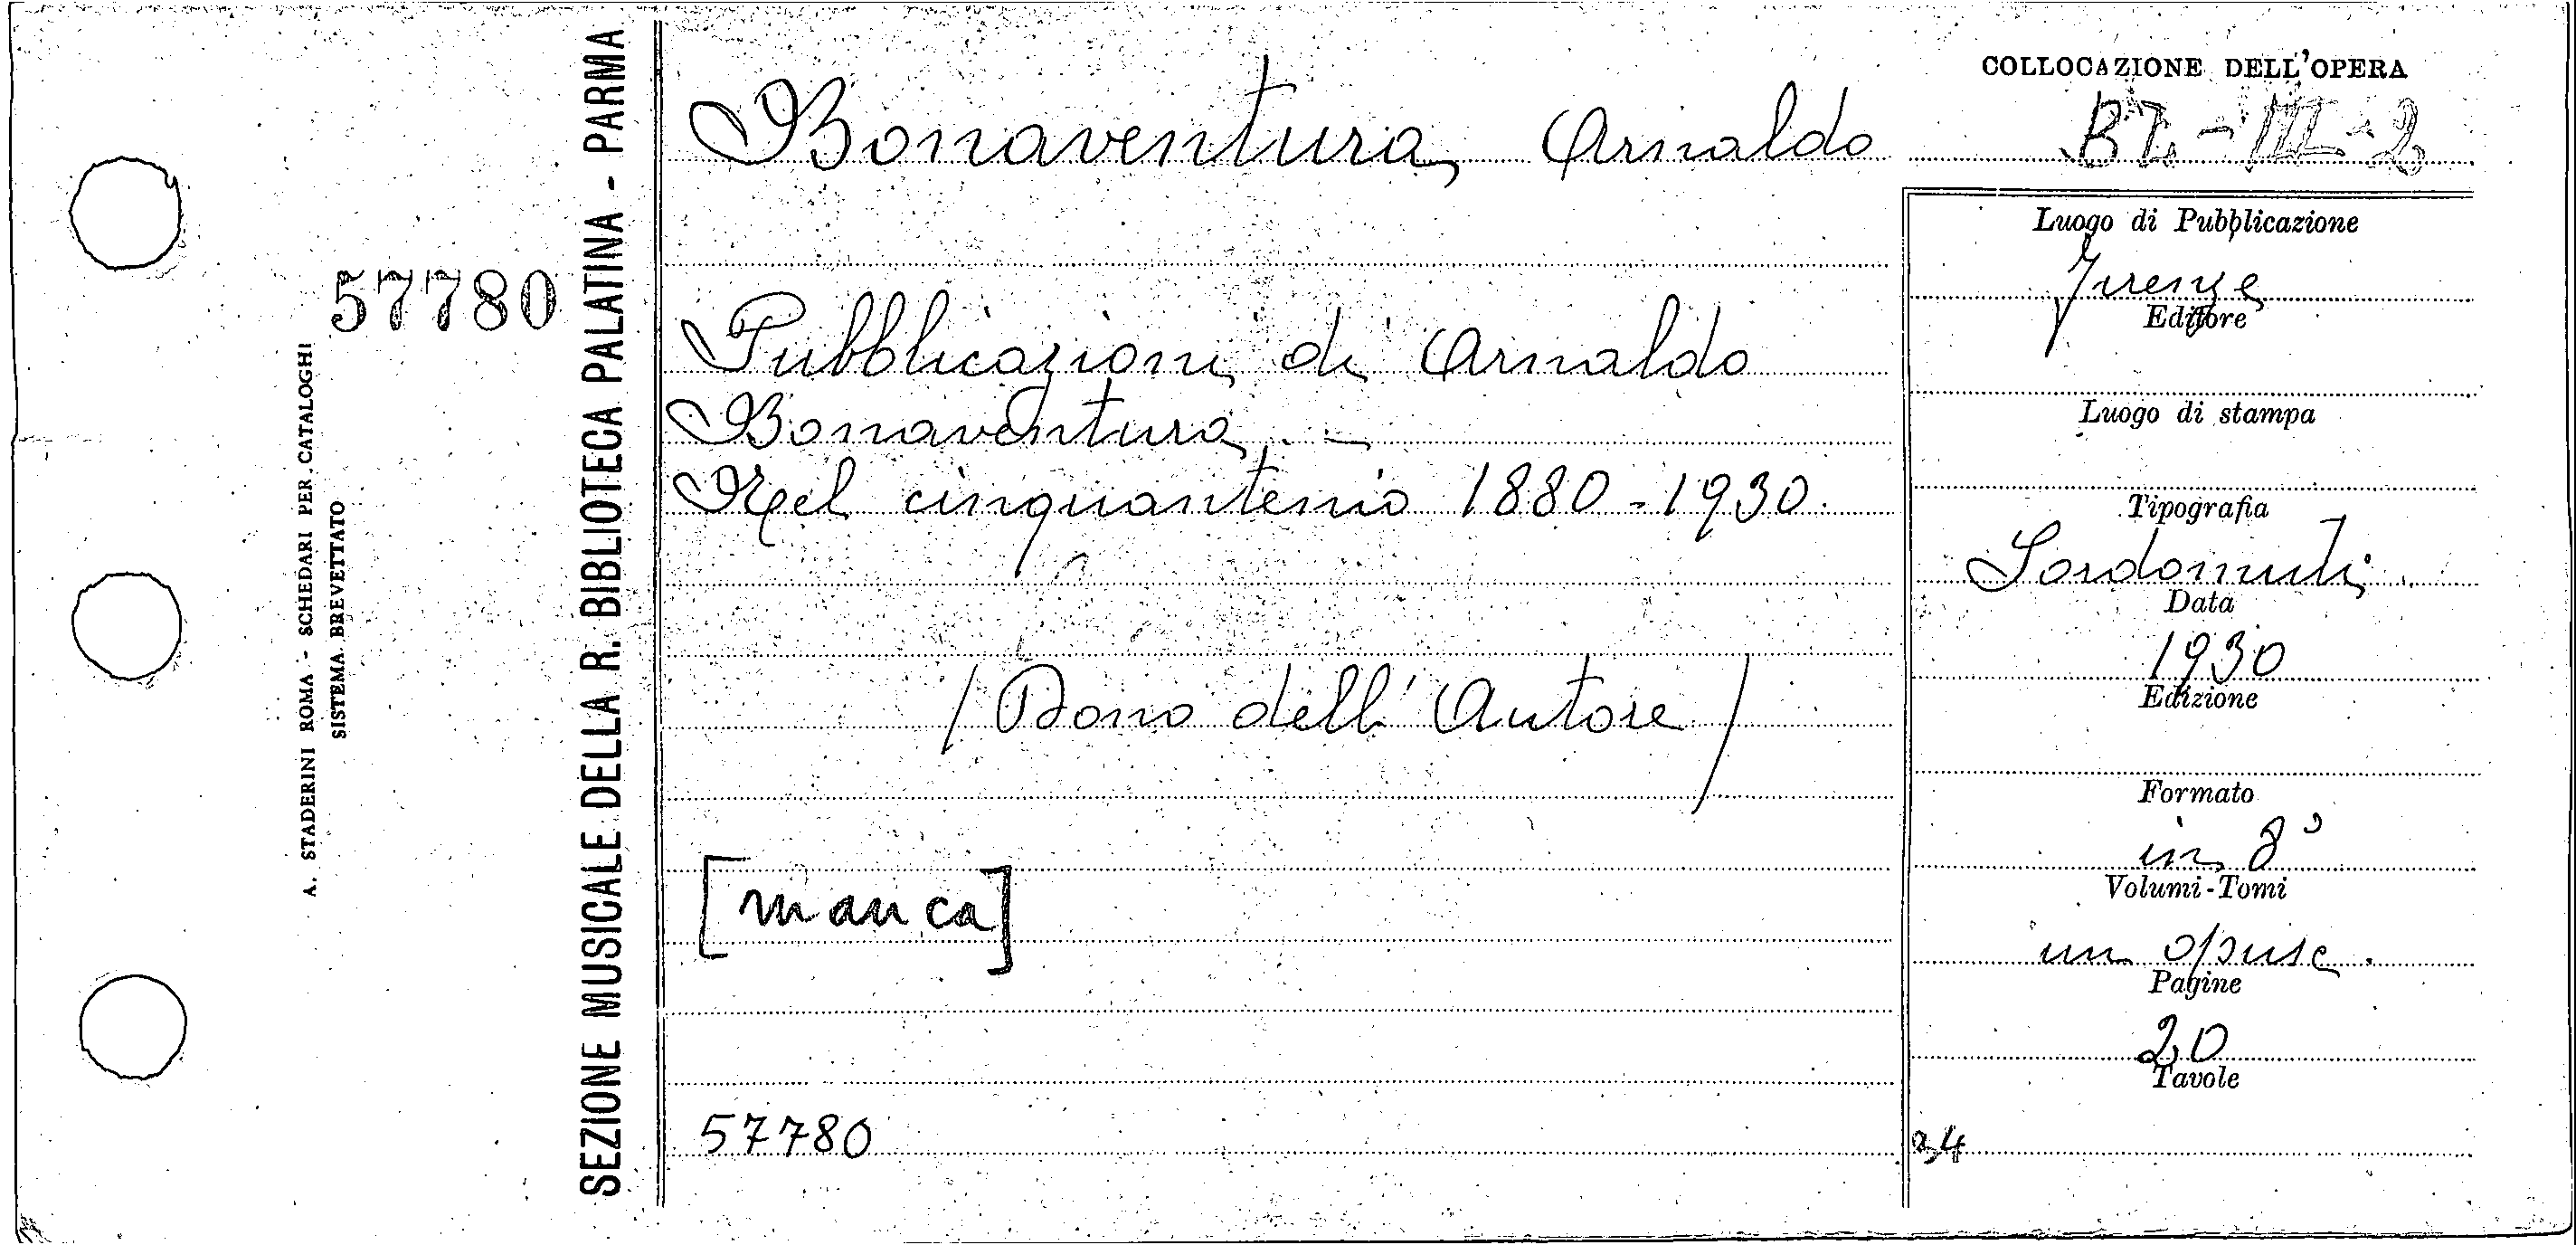 57780
A. STADERINI ROMA - SCHEDARI PER CATALOGHI
SISTEMA BREVETTATO
SEZIONE MUSICALE DELLA R. BIBLIOTECA PALATINA - PARMA
Bonaventura, Arnaldo
Pubblicazioni di Arnaldo
Bonaventura. -
Nel cinquantenio 1880-1930.
(Dono dell'Autore)
[manca]
57780
COLLOCAZIONE DELL'OPERA
BI.-III-2
Luogo di Pubblicazione
Firenze
Editore
Luogo di stampa
Tipografia
Sordomuti
Data
1930
Edizione
Formato
in 8°
Volumi-Tomi
un opusc.
Pagine
20
Tavole